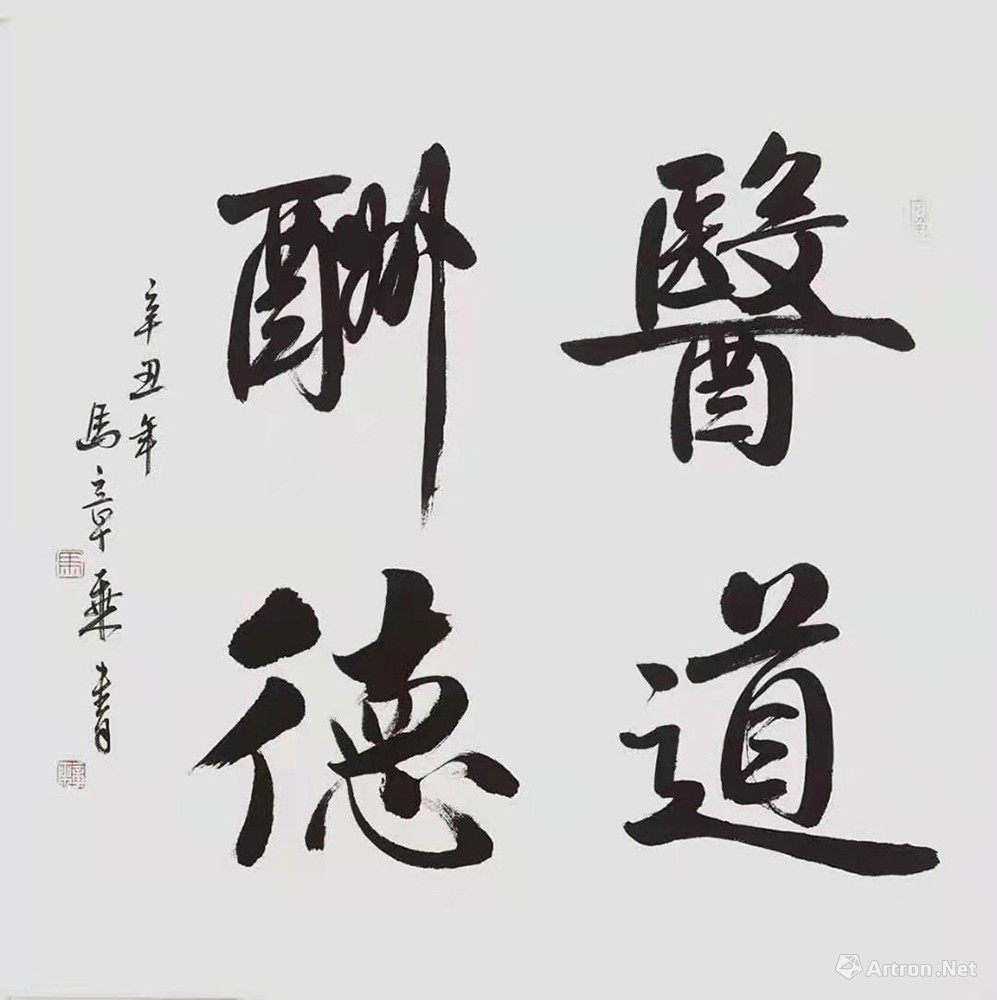 醫道
酬德
辛丑年
馬章乘書
馬
Artron.Net